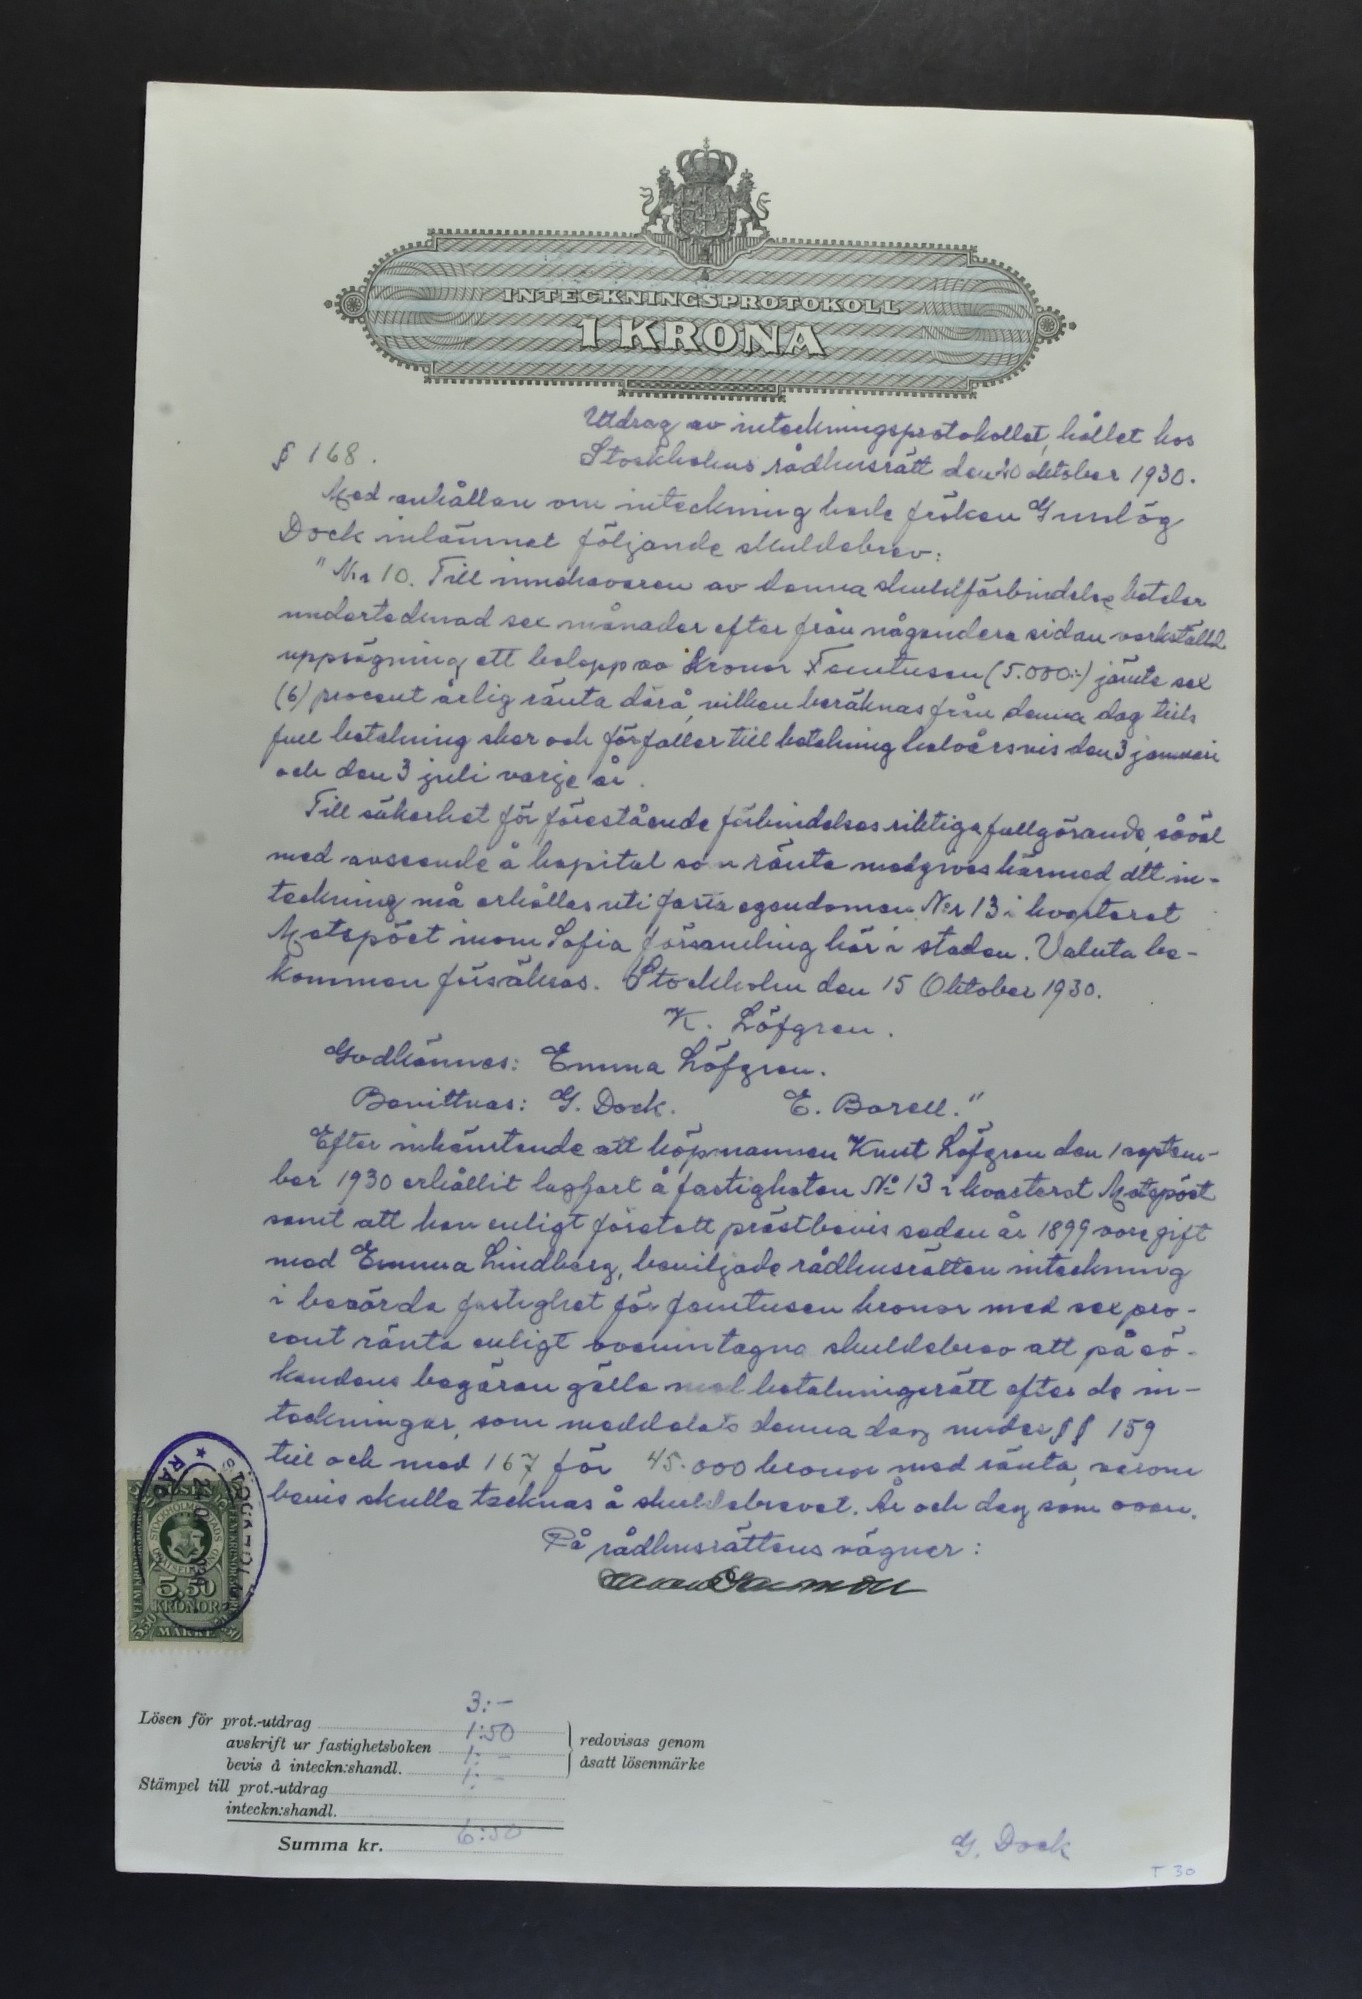 INTECKNINGSPROTOKOLL
1 KRONA
Utdrag av inteckningsprotokollet, hållet hos
§ 168. Stockholms rådhusrätt den 20 oktober 1930.
Med anhållan om inteckning hade fröken Gunlög
Dock inlämnat följande skuldebrev:
"N:r 10. Till innehavaren av denna skuldförbindelse betalar
undertecknad sex månader efter från någondera sidan verkställd
uppsägning ett belopp av Kronor Femtusen (5.000:-) jämte sex
(6) procent årlig ränta därå, vilken beräknas från denna dag tills
full betalning sker och förfaller till betalning halvårsvis den 3 januari
och den 3 juli varje år.
Till säkerhet för förestående förbindelses riktiga fullgörande, såväl
med avseende å kapital som ränta medgives härmed att in-
teckning må erhållas uti fasta egendomen N:r 13 i kvarteret
Metspöet inom Sofia församling här i staden. Valuta be-
kommen försäkras. Stockholm den 15 Oktober 1930.
K. Löfgren.
Godkännes: Emma Löfgren.
Bevittnas: G. Dock. E. Borell."
Efter inhämtande att köpmannen Knut Löfgren den 1 septem-
ber 1930 erhållit lagfart å fastigheten No 13 i kvarteret Metspöet
samt att han enligt företett prästbevis sedan år 1899 vore gift
med Emma Lindberg, beviljade rådhusrätten inteckning
i berörda fastighet för femtusen kronor med sex pro-
cent ränta enligt ovanintagna skuldebrev att på sö-
kandens begäran gälla med betalningsrätt efter de in-
teckningar, som meddelats denna dag under §§ 159
till och med 167 för 45.000 kronor med ränta, varom
bevis skulle tecknas å skuldebrevet. År och dag som ovan.
På rådhusrättens vägnar:
STOCKHOLMS
RÅD
STOCKHOLMS STADS
5,50
KRONOR
MÄRKE
3:-
Lösen för prot.-utdrag 1:50
avskrift ur fastighetsboken 1:- redovisas genom
bevis å inteckn:shandl. 1:- åsatt lösenmärke
Stämpel till prot.-utdrag
inteckn:shandl.
Summa kr. 6:50
G. Dock
T 30